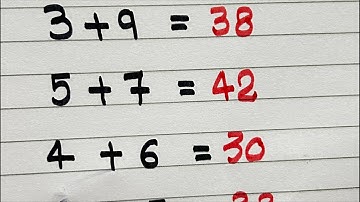 3 + 9 = 38
5 + 7 = 42
4 + 6 = 30